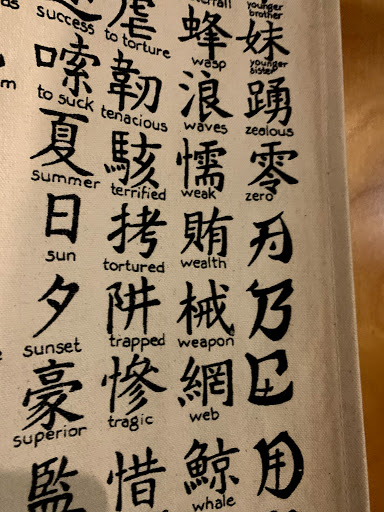 success
to torture
younger
brother
蜂
妹
wasp
younger
sister
嗦
韌
浪
踴
to suck
tenacious
waves
zealous
夏
駭
懦
零
summer
terrified
weak
zero
日
拷
賄
sun
tortured
wealth
夕
阱
械
sunset
trapped
weapon
豪
慘
網
superior
tragic
web
監
惜
鯨
whale